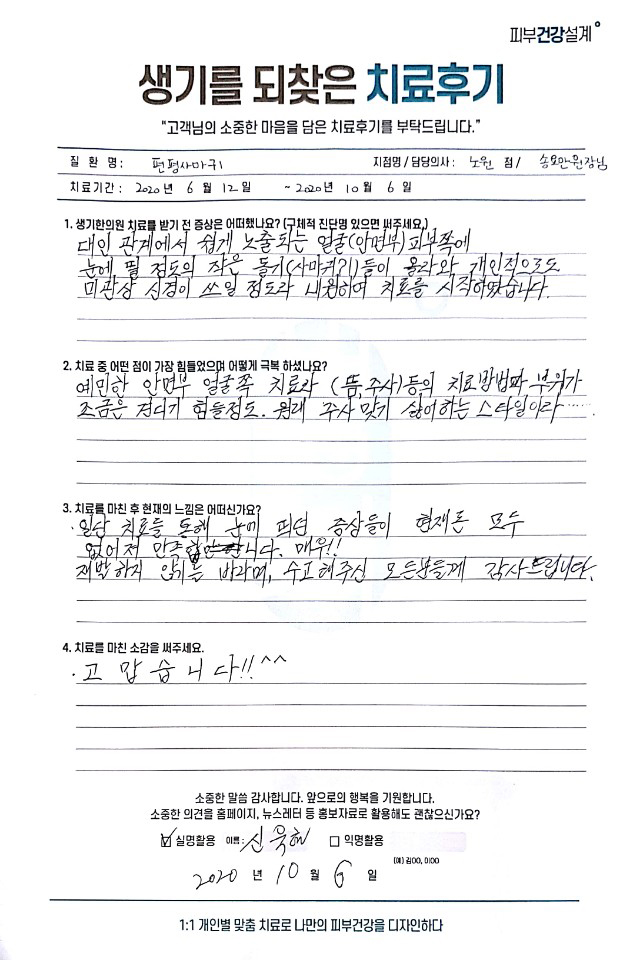 피부건강설계
생기를 되찾은 치료후기
"고객님의 소중한 마음을 담은 치료후기를 부탁드립니다."
질 환 명 : 편평사마귀 지점명 / 담당의사 : 노원 점 / 원장님
치료기간 : 2020 년 6 월 12 일 ~ 2020 년 10 월 6 일
1. 생기한의원 치료를 받기 전 증상은 어떠했나요? (구체적 진단명 있으면 써주세요.)
대인 관계에서 쉽게 노출되는 얼굴(안면부)피부쪽에
눈에 띌 정도의 작은 돌기(사마귀?)들이 올라와 개인적으로도
미관상 신경이 쓰일 정도라 내원하여 치료를 시작하였습니다.
2. 치료 중 어떤 점이 가장 힘들었으며 어떻게 극복 하셨나요?
예민한 안면부 얼굴쪽 치료라 (뜸,주사)등의 치료방법과 부위가
조금은 견디기 힘들정도. 원래 주사 맞기 싫어하는 스타일이라......
3. 치료를 마친 후 현재의 느낌은 어떠신가요?
· 일단 치료를 통해 눈에 띄던 증상들이 현재론 모두
없어져 만족합니다. 매우!!
재발하지 않기를 바라며, 수고해주신 모든분들께 감사드립니다.
4. 치료를 마친 소감을 써주세요.
· 고 맙 습 니 다!! ^^
소중한 말씀 감사합니다. 앞으로의 행복을 기원합니다.
소중한 의견을 홈페이지, 뉴스레터 등 홍보자료로 활용해도 괜찮으신가요?
☑ 실명활용 이름 : 신 □ 익명활용
(예) 김OO, 이OO
2020 년 10 월 6 일
1:1 개인별 맞춤 치료로 나만의 피부건강을 디자인하다